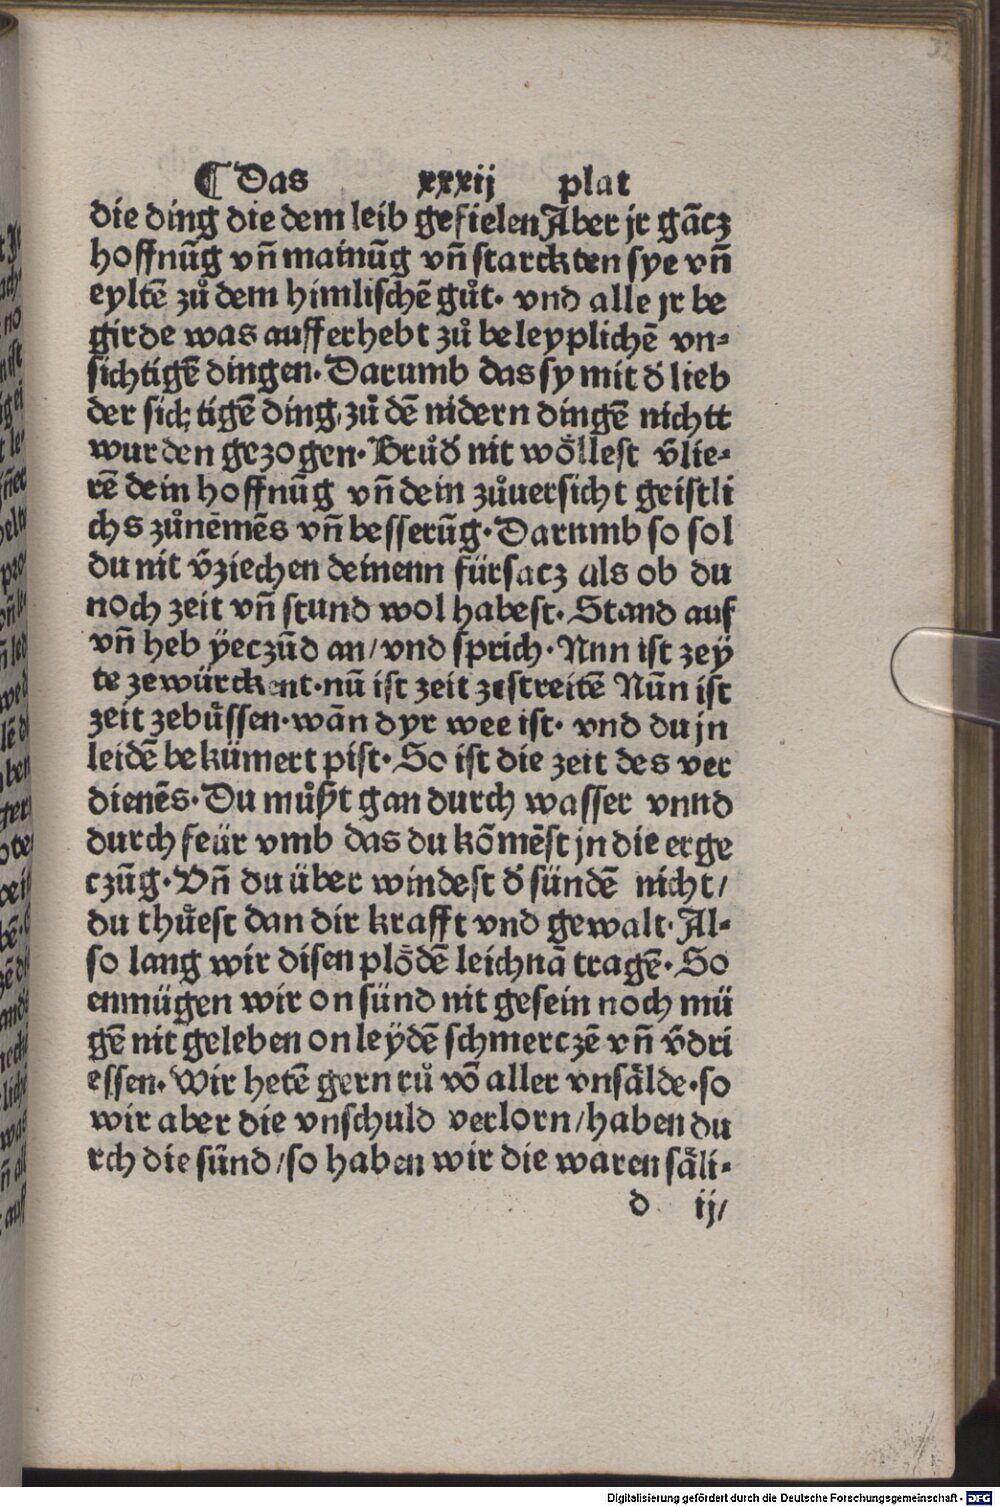 32
¶ Das xxxij plat
die ding die dem leib gefielen Aber jr gācz
hoffnūg vn̄ mainūg vn̄ starckten sye vn̄
eyltē zuͦ dem himlischē guͦt. vnd alle jr be
girde was aufferhebt zuͦ beleyplichē vn⸗
sichtigē dingen. Darumb das sy mit d̄ lieb
der sichtigē ding, zuͦ dē nidern dingē nichtt
wurden gezogen. Bruͦd̄ nit woͤllest v̄lie⸗
rē dein hoffnūg vn̄ dein zuͦuersicht geistli
chs zuͦnēmēs vn̄ besserūg. Darumb so sol
du nit v̄ziechen deinenn fürsacz als ob du
noch zeit vn̄ stund wol habest. Stand auf
vn̄ heb ÿeczūd an/ vnd sprich. Nnn ist zeÿ
te zewürckent. nū ist zeit zestreitē Nūn ist
zeit zebuͤssen. wān dyr wee ist. vnd du jn
leidē bekümert pist. So ist die zeit des ver
dienēs. Du muͦßt gan durch wasser vnnd
durch feür vmb das du kōmēst jn die erge
czūg. Vn̄ du über windest d̄ sündē nicht/
du thuͤest dan dir krafft vnd gewalt. Al⸗
so lang wir disen ploͤdē leichnā tragē. So
enmügen wir on sünd nit gesein noch mü
gē nit geleben on leÿdē schmerczē vn̄ v̄dri
essen. Wir hetē gern ruͦ vō aller vnsaͤlde. so
wir aber die vnschuld verlorn/ haben du
rch die sünd/ so haben wir die waren saͤli⸗
d ij/
Digitalisierung gefördert durch die Deutsche Forschungsgemeinschaft - DFG